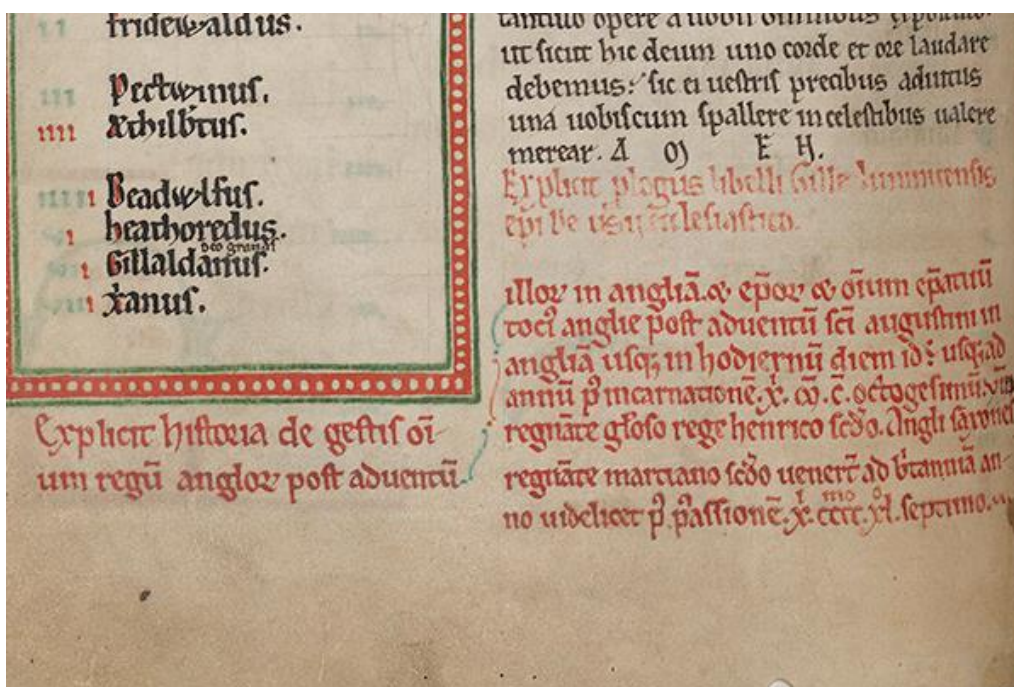 fridewaldus.
Pectwinus.
Æthilb'tus.
Beadwlfus.
heathoredus.
deo grands
Gillaldanus.
x̄anus.
Explicit historia de gestis oī
um regū angloꝝ post aduentū
ut sicut hic deum uno corde et ore laudare
debemus: sic ei uestris precibus adiutus
una uobiscum spallere in celestibus ualere
merear. A M E N.
Explicit plogus libelli Gille lumnicensis
ep̄i de usu ecclesiastico.
illoꝝ in angliā. & ep̄oꝝ & oīum ep̄atuū
toci' anglie post aduentū sc̄i augustini in
angliā usq; in hodiernū diem id ē usq; ad
annū p' incarnationē. x̄. M. C. octogesimū.
regnāte glōso rege henrico sc̄do. Angli saxonici
regnāte martiano sc̄do uener̄t ad b'tanniā an-
no uidelicet p' passionē. x̄. cccc. xl. septimo.